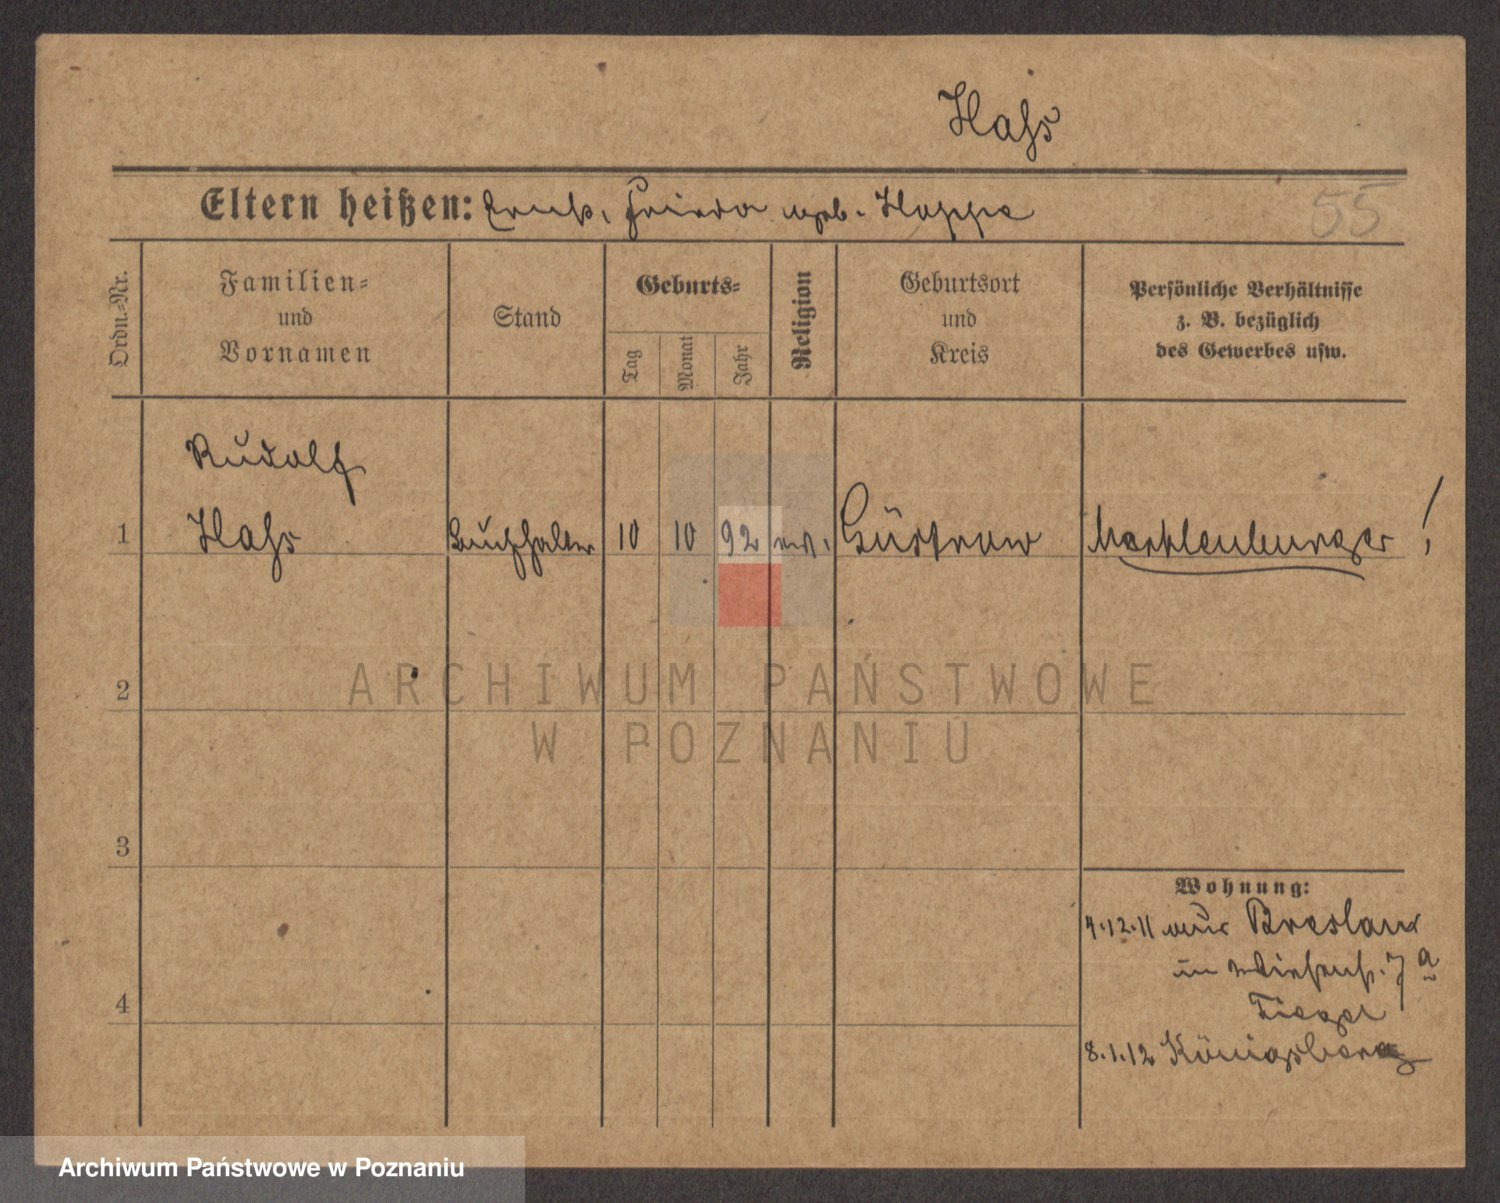 Hahs
Eltern heißen: Ernst, Frieda geb. Hoppe
55
Ordn.-Nr.
Familien-
und
Vornamen
Stand
Geburts-
Tag
Monat
Jahr
Religion
Geburtsort
und
Kreis
Persönliche Verhältnisse
z. B. bezüglich
des Gewerbes usw.
Rudolf
1 Hahs Buchhalter 10 10 92 ev. Güstrow Mecklenburger!
ARCHIWUM PAŃSTWOWE
W POZNANIU
2
3
4
Wohnung:
4.12.11 aus Breslau
in 7a
8.1.12 Königsberg
Archiwum Państwowe w Poznaniu